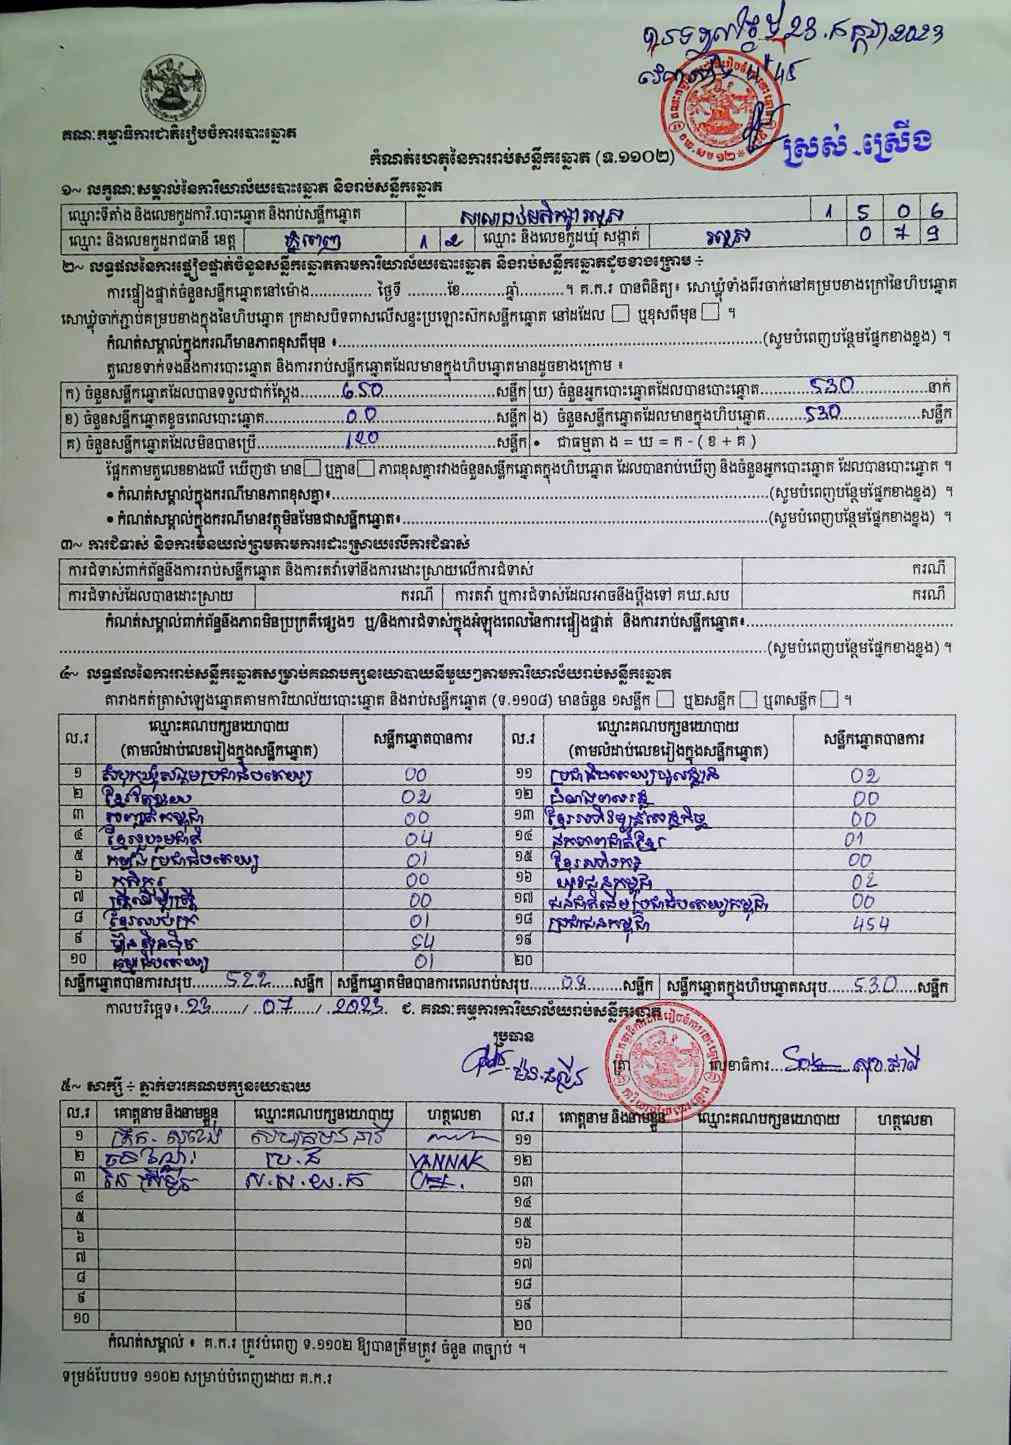 ២៣.កក្កដា ២០២៣
គណៈកម្មាធិការជាតិរៀបចំការបោះឆ្នោត
កំណត់ហេតុនៃការរាប់សន្លឹកឆ្នោត (ទ.១១០២)
ស្រស់ .ស្រើង
១~ លក្ខណៈសម្គាល់នៃការិយាល័យបោះឆ្នោត និងរាប់សន្លឹកឆ្នោត
ឈ្មោះទីតាំង និងលេខកូដការិ.បោះឆ្នោត និងរាប់សន្លឹកឆ្នោត 1 5 0 6
ឈ្មោះ និងលេខកូដរាជធានី ខេត្ត ភ្នំពេញ 1 2 ឈ្មោះ និងលេខកូដឃុំ សង្កាត់ 0 7 9
២~ លទ្ធផលនៃការផ្ទៀងផ្ទាត់ចំនួនសន្លឹកឆ្នោតតាមការិយាល័យបោះឆ្នោត និងរាប់សន្លឹកឆ្នោតដូចខាងក្រោម ៖
ការផ្ទៀងផ្ទាត់ចំនួនសន្លឹកឆ្នោតនៅម៉ោង.............. ថ្ងៃទី .........ខែ.........ឆ្នាំ..........។ គ.ក.រ បានពិនិត្យ៖ សោឃ្លុំទាំងពីរចាក់នៅគម្របខាងក្រៅនៃហិបឆ្នោត
សោឃ្លុំចាក់ភ្ជាប់គម្របខាងក្នុងនៃហិបឆ្នោត ក្រដាសបិទពាសលើសន្ទះប្រឡោះស៊កសន្លឹកឆ្នោត នៅដដែល ☐ ឬខុសពីមុន ☐ ។
កំណត់សម្គាល់ក្នុងករណីមានភាពខុសពីមុន ៖...............(សូមបំពេញបន្ថែមផ្នែកខាងខ្នង) ។
តួលេខទាក់ទងនឹងការបោះឆ្នោត និងការរាប់សន្លឹកឆ្នោតដែលមានក្នុងហិបឆ្នោតមានដូចខាងក្រោម ៖
ក) ចំនួនសន្លឹកឆ្នោតដែលបានទទួលជាក់ស្តែង.........650.........សន្លឹក ឃ) ចំនួនអ្នកបោះឆ្នោតដែលបានបោះឆ្នោត.........530.........នាក់
ខ) ចំនួនសន្លឹកឆ្នោតខូចពេលបោះឆ្នោត.........00.........សន្លឹក ង) ចំនួនសន្លឹកឆ្នោតដែលមានក្នុងហិបឆ្នោត.........530.........សន្លឹក
គ) ចំនួនសន្លឹកឆ្នោតដែលមិនបានប្រើ.........120.........សន្លឹក • ជាធម្មតា ង = ឃ = ក - ( ខ + គ )
ផ្អែកតាមតួលេខខាងលើ ឃើញថា មាន☐ ឬគ្មាន☐ ភាពខុសគ្នារវាងចំនួនសន្លឹកឆ្នោតក្នុងហិបឆ្នោត ដែលបានរាប់ឃើញ និងចំនួនអ្នកបោះឆ្នោត ដែលបានបោះឆ្នោត ។
• កំណត់សម្គាល់ក្នុងករណីមានភាពខុសគ្នា៖...............(សូមបំពេញបន្ថែមផ្នែកខាងខ្នង) ។
• កំណត់សម្គាល់ក្នុងករណីមានវត្ថុមិនមែនជាសន្លឹកឆ្នោត៖...............(សូមបំពេញបន្ថែមផ្នែកខាងខ្នង) ។
៣~ ការជំទាស់ និងការមិនយល់ព្រមតាមការដោះស្រាយលើការជំទាស់
ការជំទាស់ពាក់ព័ន្ធនឹងការរាប់សន្លឹកឆ្នោត និងការតវ៉ាទៅនឹងការដោះស្រាយលើការជំទាស់ ករណី
ការជំទាស់ដែលបានដោះស្រាយ ករណី ការតវ៉ា ឬការជំទាស់ដែលអាចនឹងប្តឹងទៅ គឃ.សប ករណី
កំណត់សម្គាល់ពាក់ព័ន្ធនឹងភាពមិនប្រក្រតីផ្សេងៗ ឬ/និងការជំទាស់ក្នុងអំឡុងពេលនៃការផ្ទៀងផ្ទាត់ និងការរាប់សន្លឹកឆ្នោត៖...............
...............(សូមបំពេញបន្ថែមផ្នែកខាងខ្នង) ។
៤~ លទ្ធផលនៃការរាប់សន្លឹកឆ្នោតសម្រាប់គណបក្សនយោបាយនីមួយៗតាមការិយាល័យរាប់សន្លឹកឆ្នោត
តារាងកត់ត្រាសំឡេងឆ្នោតតាមការិយាល័យបោះឆ្នោត និងរាប់សន្លឹកឆ្នោត (ទ.១១០៨) មានចំនួន ១សន្លឹក ☐ ឬ២សន្លឹក ☐ ឬ៣សន្លឹក ☐ ។
ល.រ ឈ្មោះគណបក្សនយោបាយ (តាមលំដាប់លេខរៀងក្នុងសន្លឹកឆ្នោត) សន្លឹកឆ្នោតបានការ ល.រ ឈ្មោះគណបក្សនយោបាយ (តាមលំដាប់លេខរៀងក្នុងសន្លឹកឆ្នោត) សន្លឹកឆ្នោតបានការ
១ សំបុកឃ្មុំសង្គមប្រជាធិបតេយ្យ 00 ១១ ប្រជាធិបតេយ្យមូលដ្ឋាន 02
២ 02 ១២ 00
៣ 00 ១៣ ខ្មែរអភិវឌ្ឍន៍សេដ្ឋកិច្ច 00
៤ ខ្មែររួបរួមជាតិ 04 ១៤ ឯកភាពជាតិខ្មែរ 01
៥ កម្លាំងប្រជាធិបតេយ្យ 01 ១៥ ខ្មែរអភិរក្ស 00
៦ កសិករ 00 ១៦ យុវជនកម្ពុជា 02
៧ ស្ត្រីដើម្បីស្ត្រី 00 ១៧ ជនជាតិដើមប្រជាធិបតេយ្យកម្ពុជា 00
៨ ខ្មែរឈប់ក្រ 01 ១៨ ប្រជាជនកម្ពុជា 454
៩ ហ៊្វុនស៊ិនប៉ិច 54 ១៩
១០ ធម្មាធិបតេយ្យ 01 ២០
សន្លឹកឆ្នោតបានការសរុប........522........សន្លឹក សន្លឹកឆ្នោតមិនបានការពេលរាប់សរុប........08........សន្លឹក សន្លឹកឆ្នោតក្នុងហិបឆ្នោតសរុប......530......សន្លឹក
កាលបរិច្ឆេទ៖..23......../..07....../..2023. ជ. គណៈកម្មការការិយាល័យរាប់សន្លឹកឆ្នោត
ប្រធាន
ត្រា លេខាធិការ
៥~ សាក្សី ÷ ភ្នាក់ងារគណបក្សនយោបាយ
ល.រ គោត្តនាម និងនាមខ្លួន ឈ្មោះគណបក្សនយោបាយ ហត្ថលេខា ល.រ គោត្តនាម និងនាមខ្លួន ឈ្មោះគណបក្សនយោបាយ ហត្ថលេខា
១ ១១
២ ប្រ.ជ VANNAK ១២
៣ ស.ស.យ.ក ១៣
៤ ១៤
៥ ១៥
៦ ១៦
៧ ១៧
៨ ១៨
៩ ១៩
១០ ២០
កំណត់សម្គាល់ ៖ គ.ក.រ ត្រូវបំពេញ ទ.១១០២ ឱ្យបានត្រឹមត្រូវ ចំនួន ៣ច្បាប់ ។
ទម្រង់បែបបទ ១១០២ សម្រាប់បំពេញដោយ គ.ក.រ